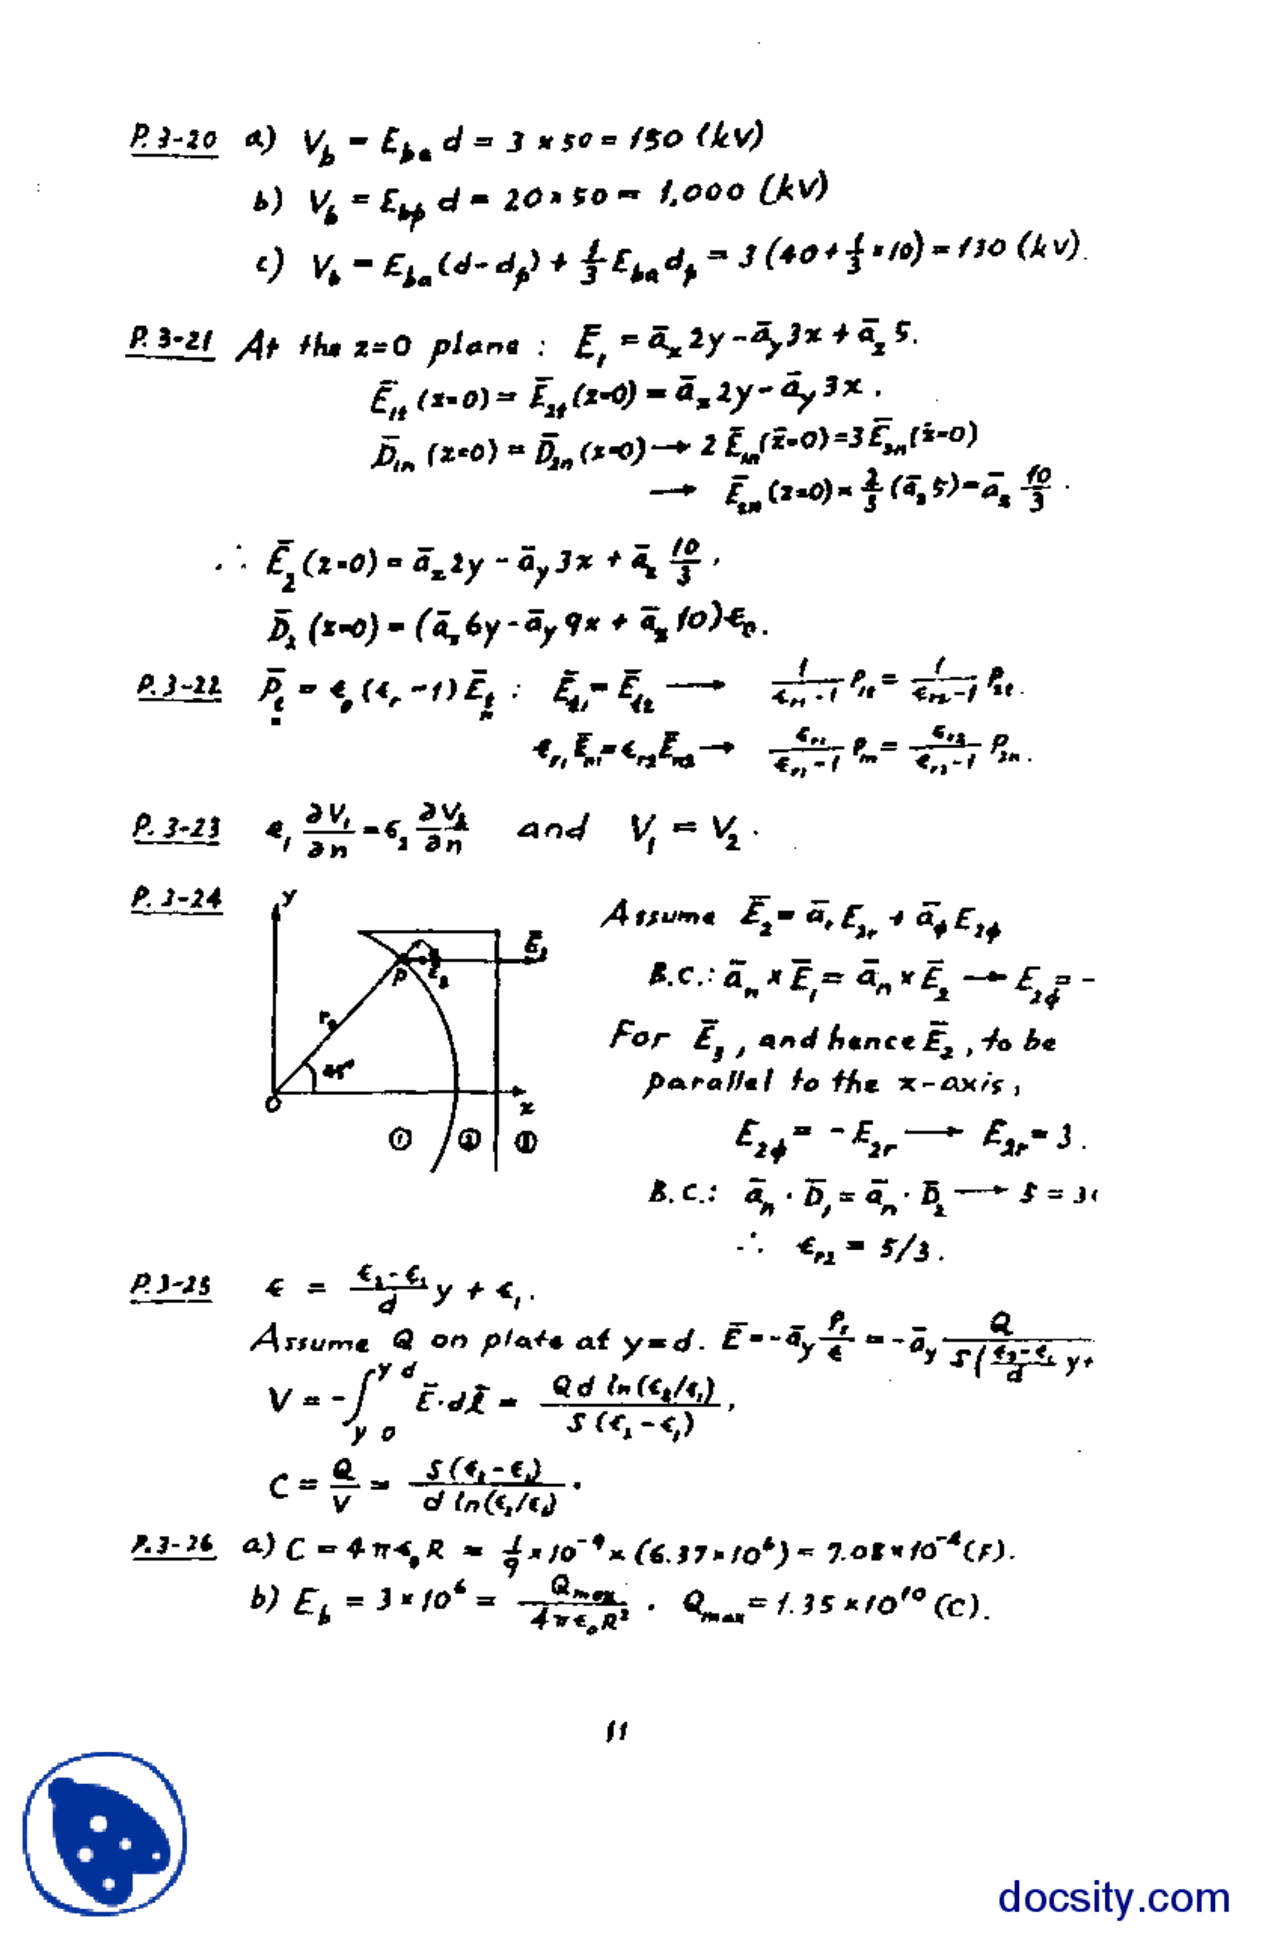 P.3-20 a) V_b = E_ba d = 3 × 50 = 150 (kV)
b) V_b = E_bp d = 20 × 50 = 1,000 (kV)
c) V_b = E_ba (d - d_p) + 1/3 E_ba d_p = 3 (40 + 1/3 × 10) = 130 (kV).
P.3-21 At the z=0 plane : Ē_1 = ā_x 2y - ā_y 3x + ā_z 5.
Ē_1t (z=0) = Ē_2t (z=0) = ā_x 2y - ā_y 3x .
D̄_1n (z=0) = D̄_2n (z=0) → 2 Ē_1n (z=0) = 3 Ē_2n (z=0)
→ Ē_2n (z=0) = 2/3 (ā_z 5) = ā_z 10/3 .
∴ Ē_2 (z=0) = ā_x 2y - ā_y 3x + ā_z 10/3 ,
D̄_2 (z=0) = (ā_x 6y - ā_y 9x + ā_z 10) ϵ_0 .
P.3-22 P̄_t = ϵ_0 (ϵ_r - 1) Ē_t : Ē_t1 = Ē_t2 → 1/(ϵ_r1 - 1) P_1t = 1/(ϵ_r2 - 1) P_2t .
ϵ_r1 Ē_n1 = ϵ_r2 Ē_n2 → ϵ_r1/(ϵ_r1 - 1) P_1n = ϵ_r2/(ϵ_r2 - 1) P_2n .
P.3-23 ϵ_1 ∂V_1/∂n = ϵ_2 ∂V_2/∂n and V_1 = V_2 .
P.3-24
y
Ē_3
P
Ē_2
r_0
45°
O
x
① ② ③
Assume Ē_2 = ā_r E_2r + ā_ϕ E_2ϕ
B.C.: ā_n × Ē_1 = ā_n × Ē_2 → E_2ϕ = -
For Ē_3 , and hence Ē_2 , to be
parallel to the x-axis,
E_2ϕ = - E_2r → E_2r = 3 .
B.C.: ā_n · D̄_1 = ā_n · D̄_2 → 5 = 3
∴ ϵ_r2 = 5/3 .
P.3-25 ϵ = (ϵ_2 - ϵ_1)/d y + ϵ_1 .
Assume Q on plate at y=d. Ē = - ā_y ρ_s/ϵ = - ā_y Q/(S((ϵ_2 - ϵ_1)/d y +
V = - ∫_{y 0}^{y d} Ē · dl̄ = Q d ln(ϵ_2/ϵ_1)/(S (ϵ_2 - ϵ_1)) ,
C = Q/V = S (ϵ_2 - ϵ_1)/(d ln(ϵ_2/ϵ_1)) .
P.3-26 a) C = 4πϵ_0 R = 1/9 × 10^-9 × (6.37 × 10^6) = 7.08 × 10^-4 (F).
b) E_b = 3 × 10^6 = Q_max/(4πϵ_0 R^2) . Q_max = 1.35 × 10^10 (C).
11
docsity.com